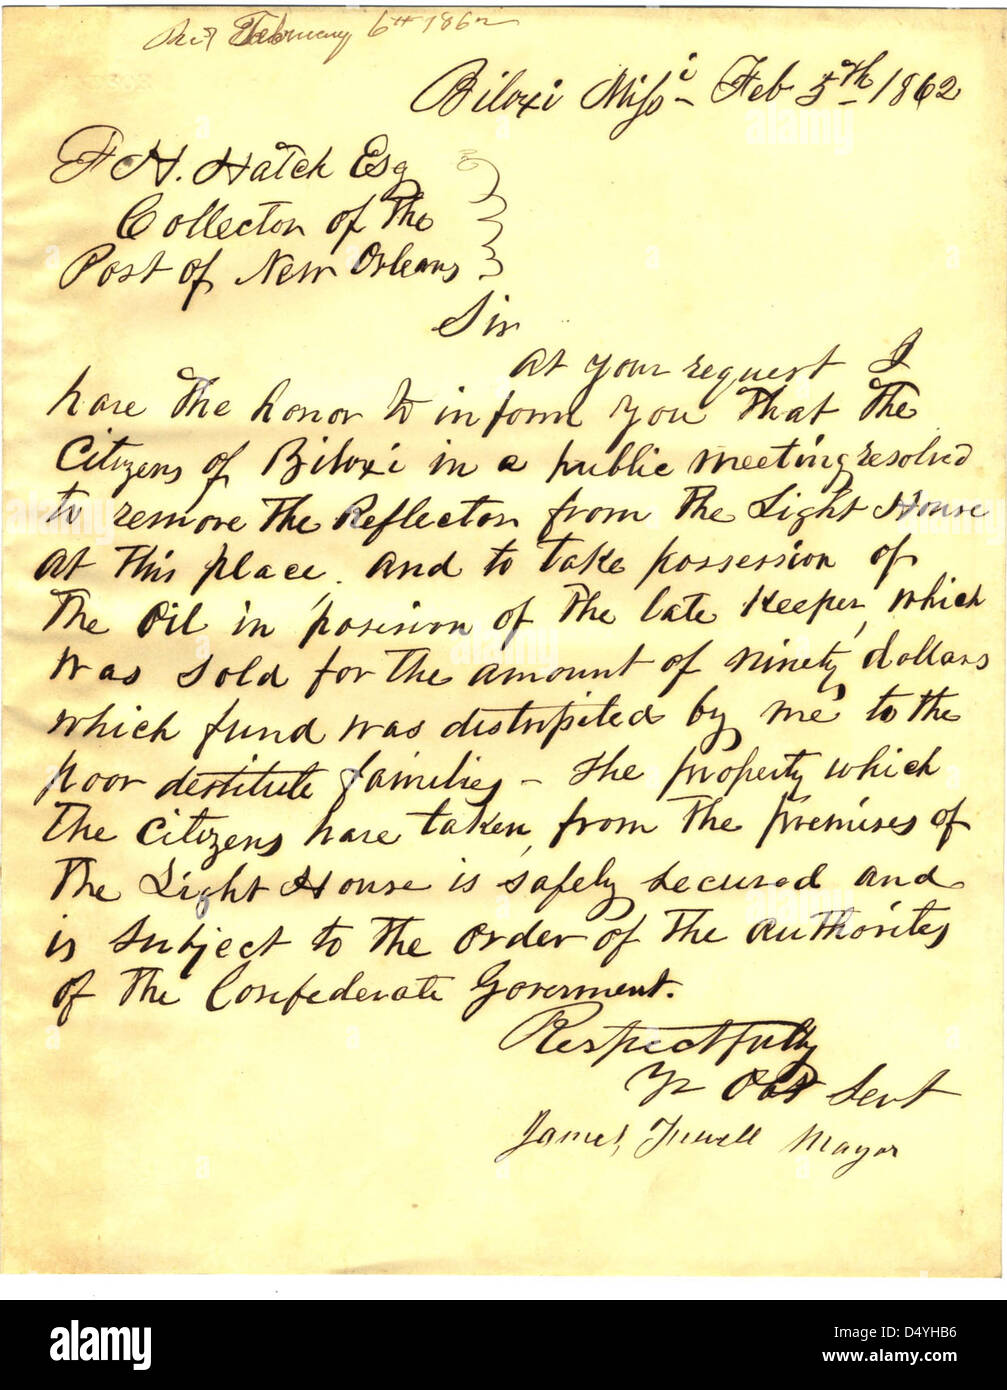 Rec'd February 6th 1862
Biloxi Missi - Feb 5th 1862
F H. Hatch Esq
Collector of the
Port of New Orleans
Sir
at your request I
have the honor to inform you that the
Citizens of Biloxi in a public meeting resolved
to remove the Reflector from the Light House
at this place, and to take possession of
the Oil in posision of the late Keeper, which
was sold for the amount of ninety dollars
which fund was distributed by me to the
poor destitute families - the property which
the Citizens have taken, from the premises of
the Light House is safely secured and
is subject to the order of the authorites
of the Confederate Goverment.
Respectfully
Yr Obt Servt
James Fewell Mayor
alamy
Image ID: D4YHB6
www.alamy.com